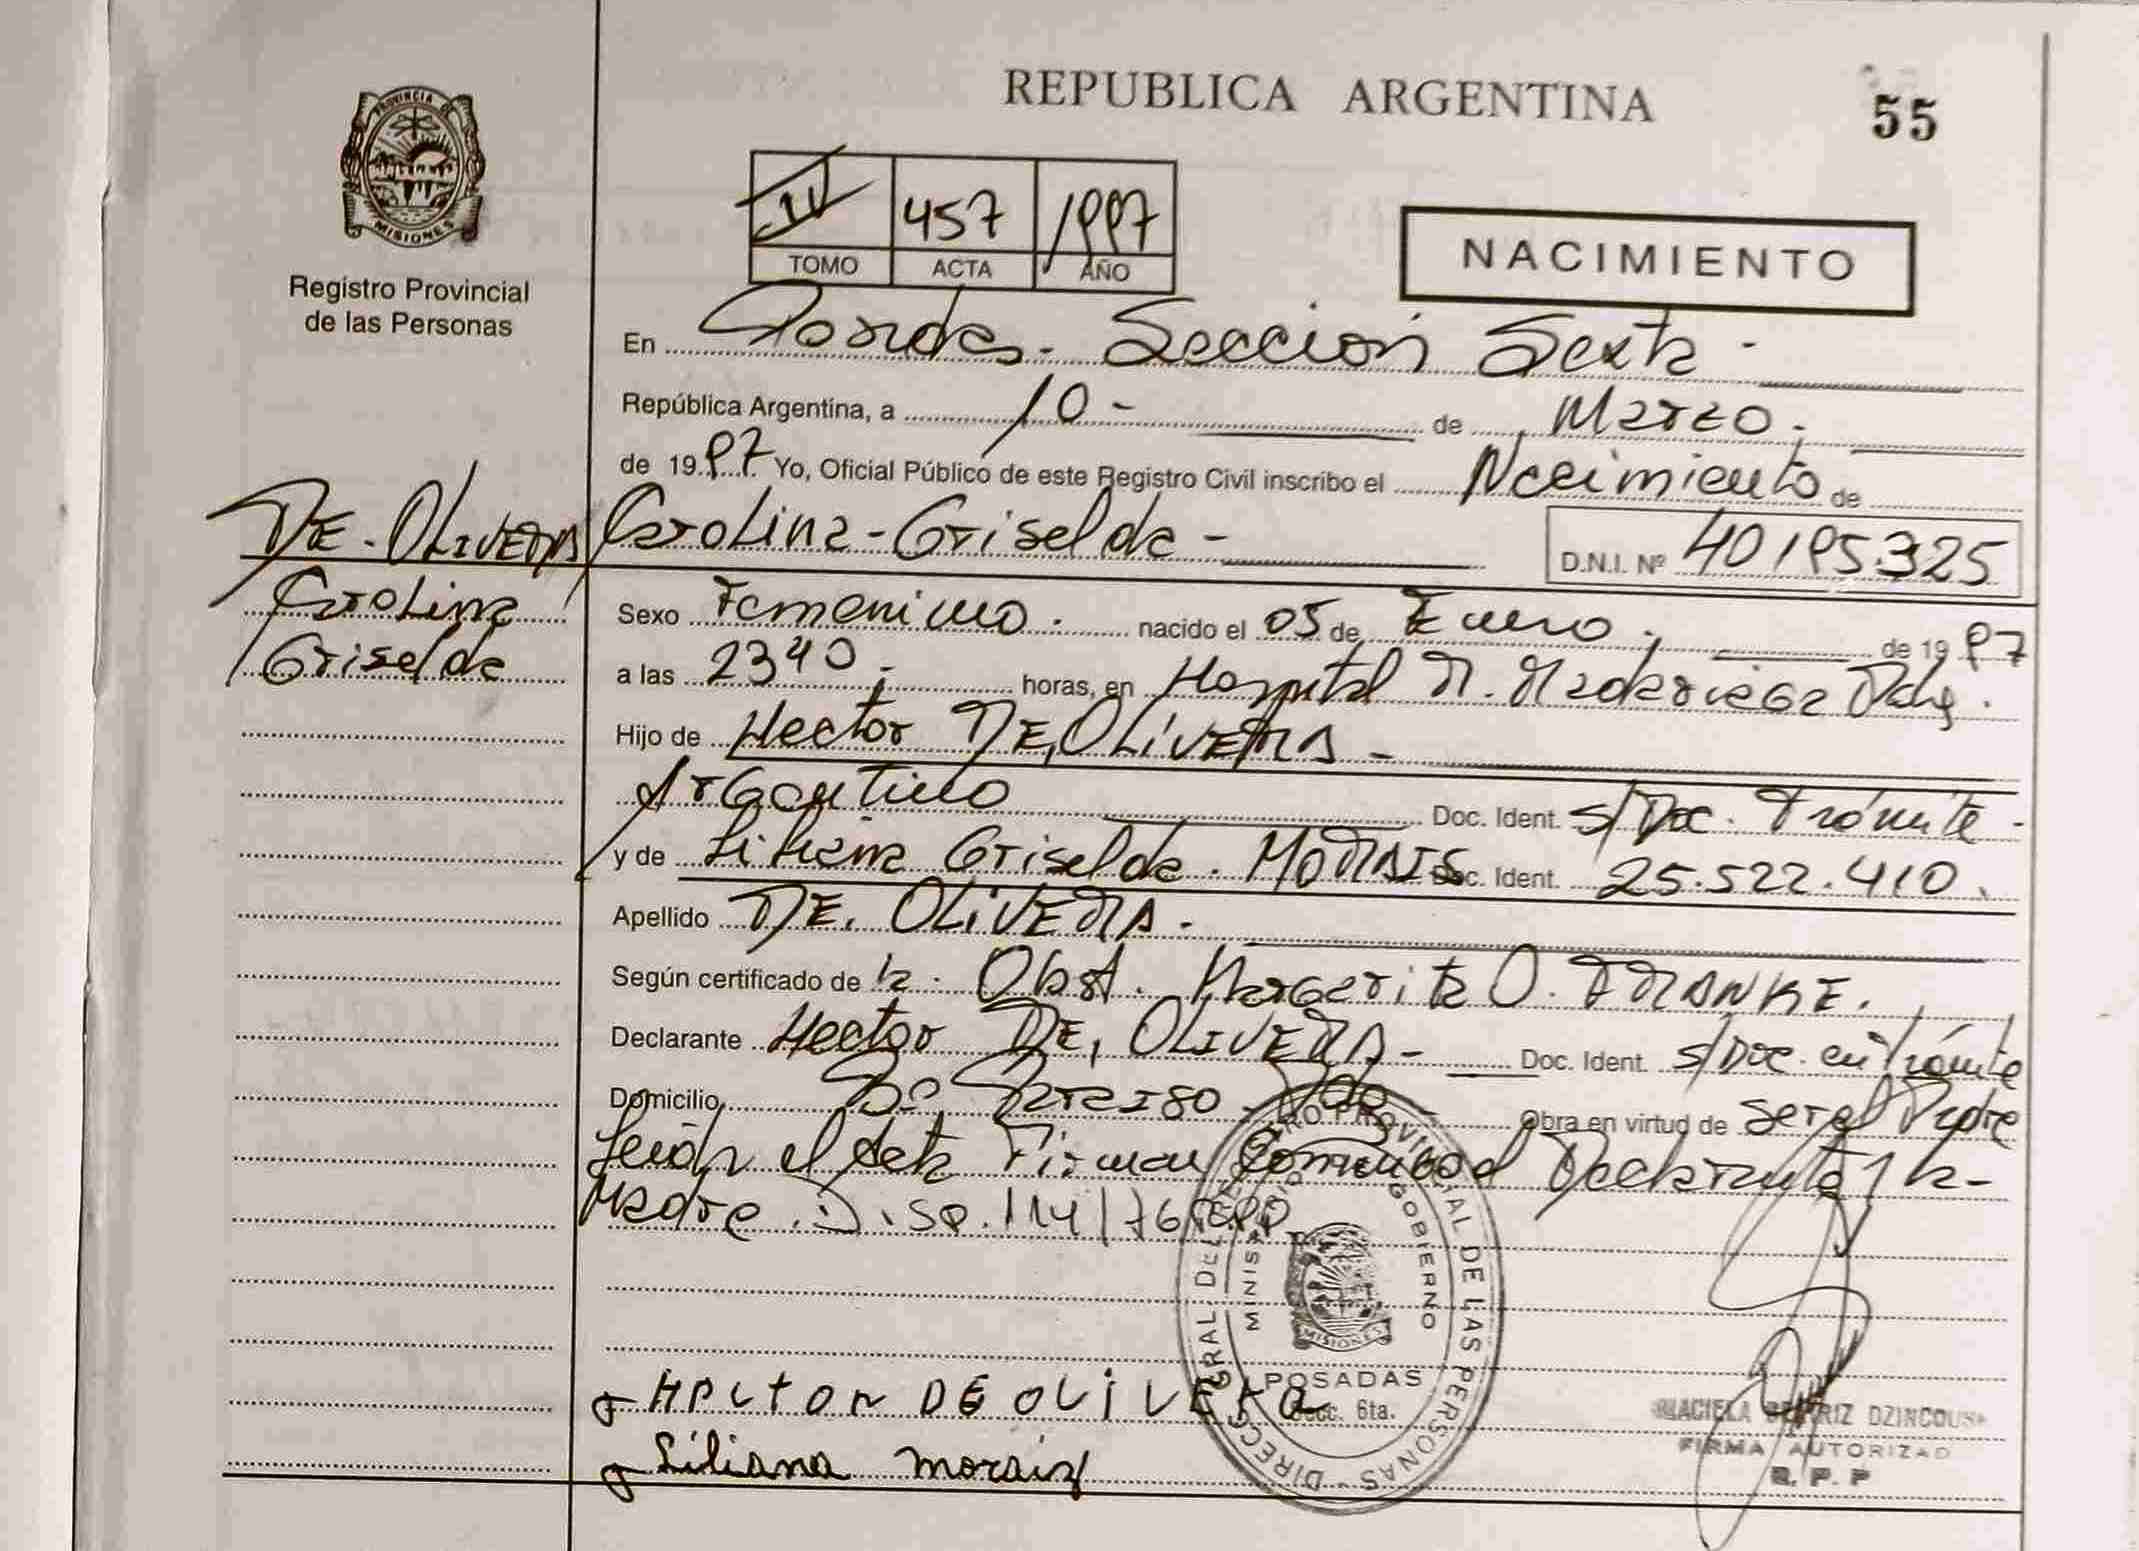 REPUBLICA ARGENTINA
55
PROVINCIA DE
MISIONES
Registro Provincial
de las Personas
IV 457 1997
TOMO ACTA AÑO
NACIMIENTO
En Posadas - Seccion Sexta -
República Argentina, a 10 - de Marzo .
de 1997 Yo, Oficial Público de este Registro Civil inscribo el Nacimiento de
DE. OLIVERA Carolina - Griselda - D.N.I. Nº 40195325
Carolina
Griselda
Sexo Femenino . nacido el 05 de Enero . de 1997
a las 2340 . horas, en Hospital R. Madariaga
Hijo de Hector DE, OLIVERA -
Argentino Doc. Ident. s/Doc. Trámite -
y de Liliana Griselda . MORAIS Doc. Ident. 25.522.410 .
Apellido DE. OLIVERA .
Según certificado de la . Obst . Margarita O. FRANKE.
Declarante Hector DE, OLIVERA - Doc. Ident. s/Doc. en Trámite
Domicilio Bº - Obra en virtud de ser el Padre
el Acta Firman Declarante y la -
Madre . Disp. 114/76
DIRECC. GRAL. DEL REGISTRO PROVINCIAL DE LAS PERSONAS -
GOBIERNO
MISIONES
POSADAS
Secc. 6ta.
HECTOR DE OLIVERA
Liliana moraiz
DZINCOUS
FIRMA AUTORIZAD
R. P. P